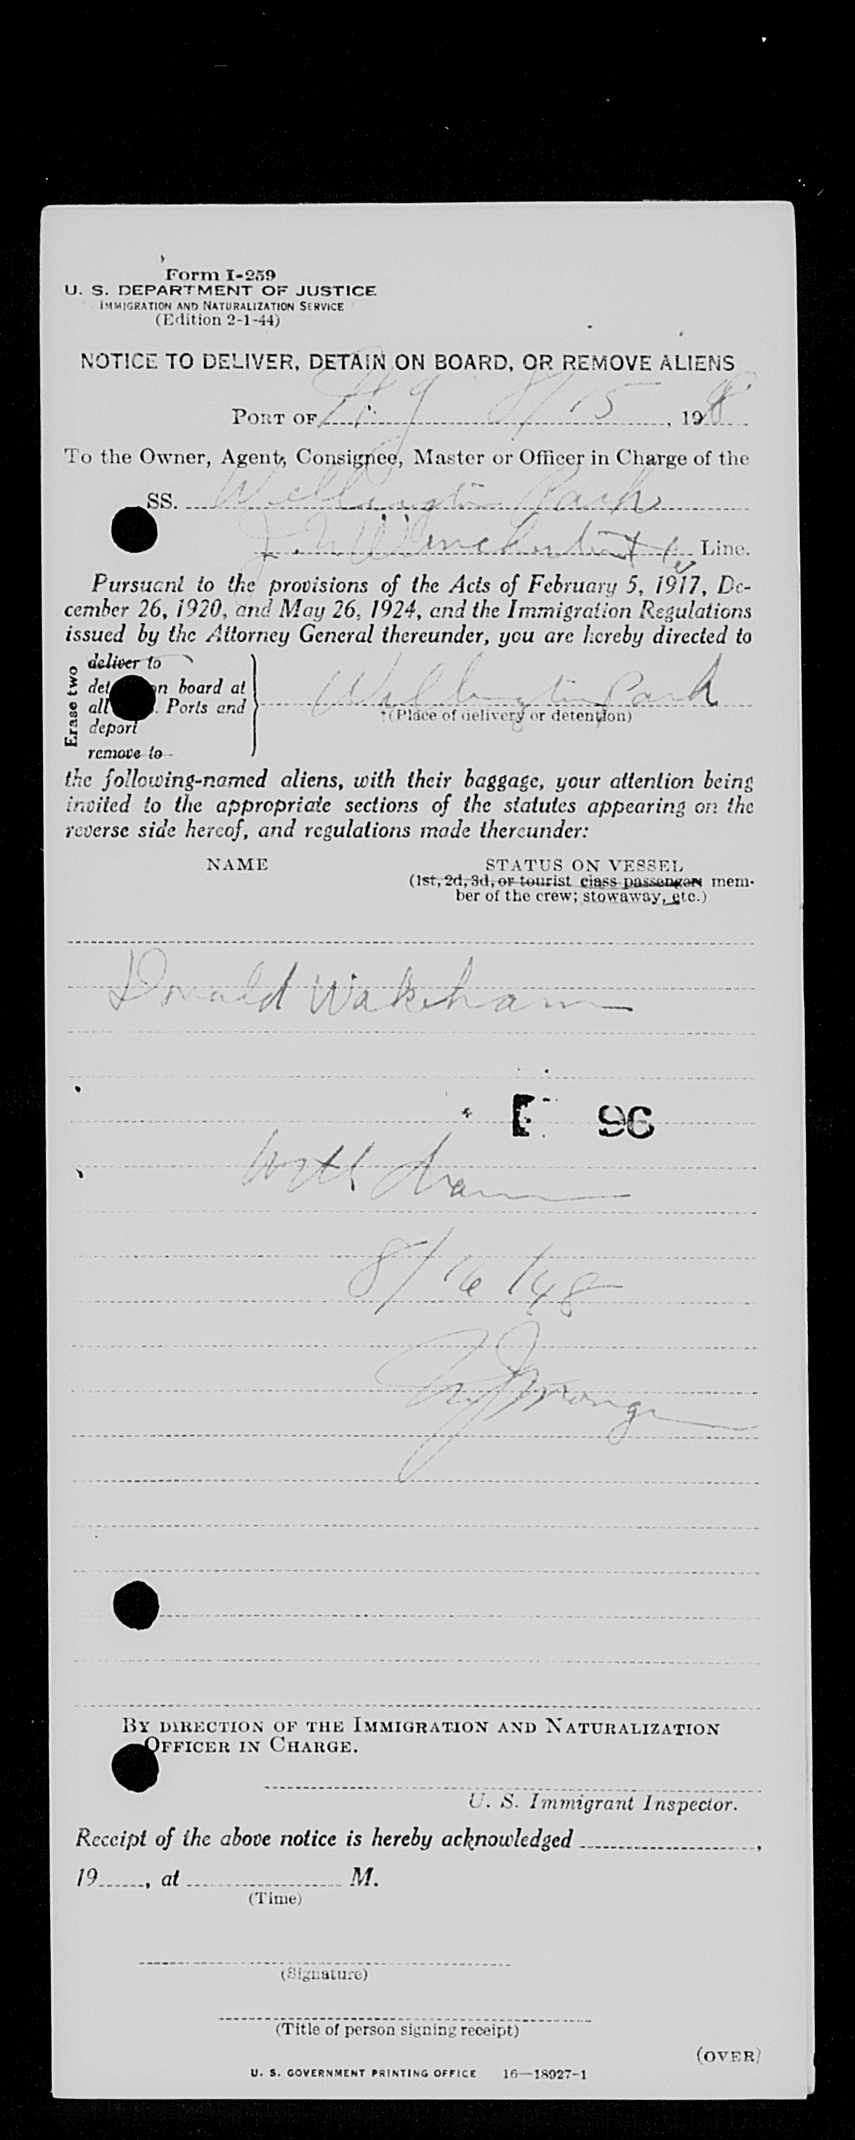 Form I-259
U. S. DEPARTMENT OF JUSTICE
IMMIGRATION AND NATURALIZATION SERVICE
(Edition 2-1-44)
NOTICE TO DELIVER, DETAIN ON BOARD, OR REMOVE ALIENS
PORT OF N.Y. 8/15, 198
To the Owner, Agent, Consignee, Master or Officer in Charge of the
SS. Wellington Park
Line.
Pursuant to the provisions of the Acts of February 5, 1917, De-
cember 26, 1920, and May 26, 1924, and the Immigration Regulations
issued by the Attorney General thereunder, you are hereby directed to
Erase two
deliver to
on board at
all Ports and
deport
remove to
Wellington Park
†(Place of delivery or detention)
the following-named aliens, with their baggage, your attention being
invited to the appropriate sections of the statutes appearing on the
reverse side hereof, and regulations made thereunder:
NAME STATUS ON VESSEL
(1st, 2d, 3d, or tourist class passenger, mem-
ber of the crew; stowaway, etc.)
Donald Wakeham
96
Withdrawn
8/16/48
BY DIRECTION OF THE IMMIGRATION AND NATURALIZATION
OFFICER IN CHARGE.
U. S. Immigrant Inspector.
Receipt of the above notice is hereby acknowledged ,
19 , at M.
(Time)
(Signature)
(Title of person signing receipt)
(OVER)
U. S. GOVERNMENT PRINTING OFFICE 16—18927-1